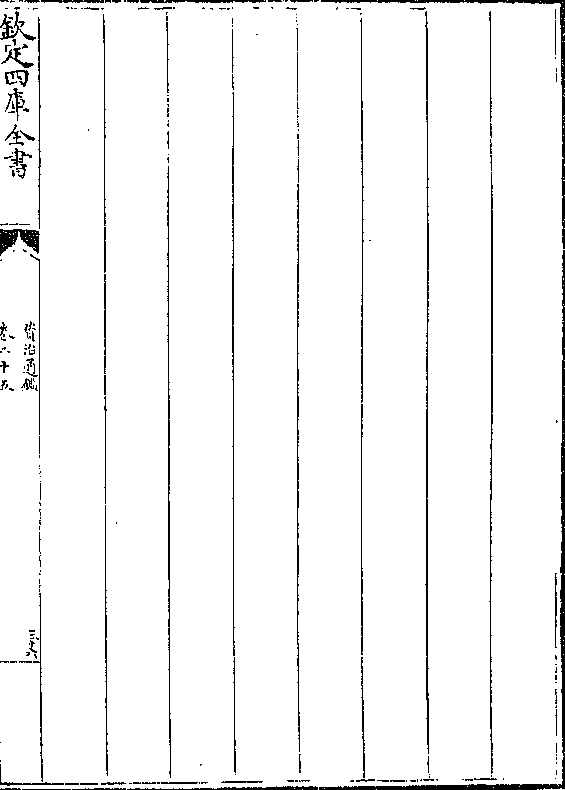 欽定四庫全書
資治通鑑
卷二十五
三十六